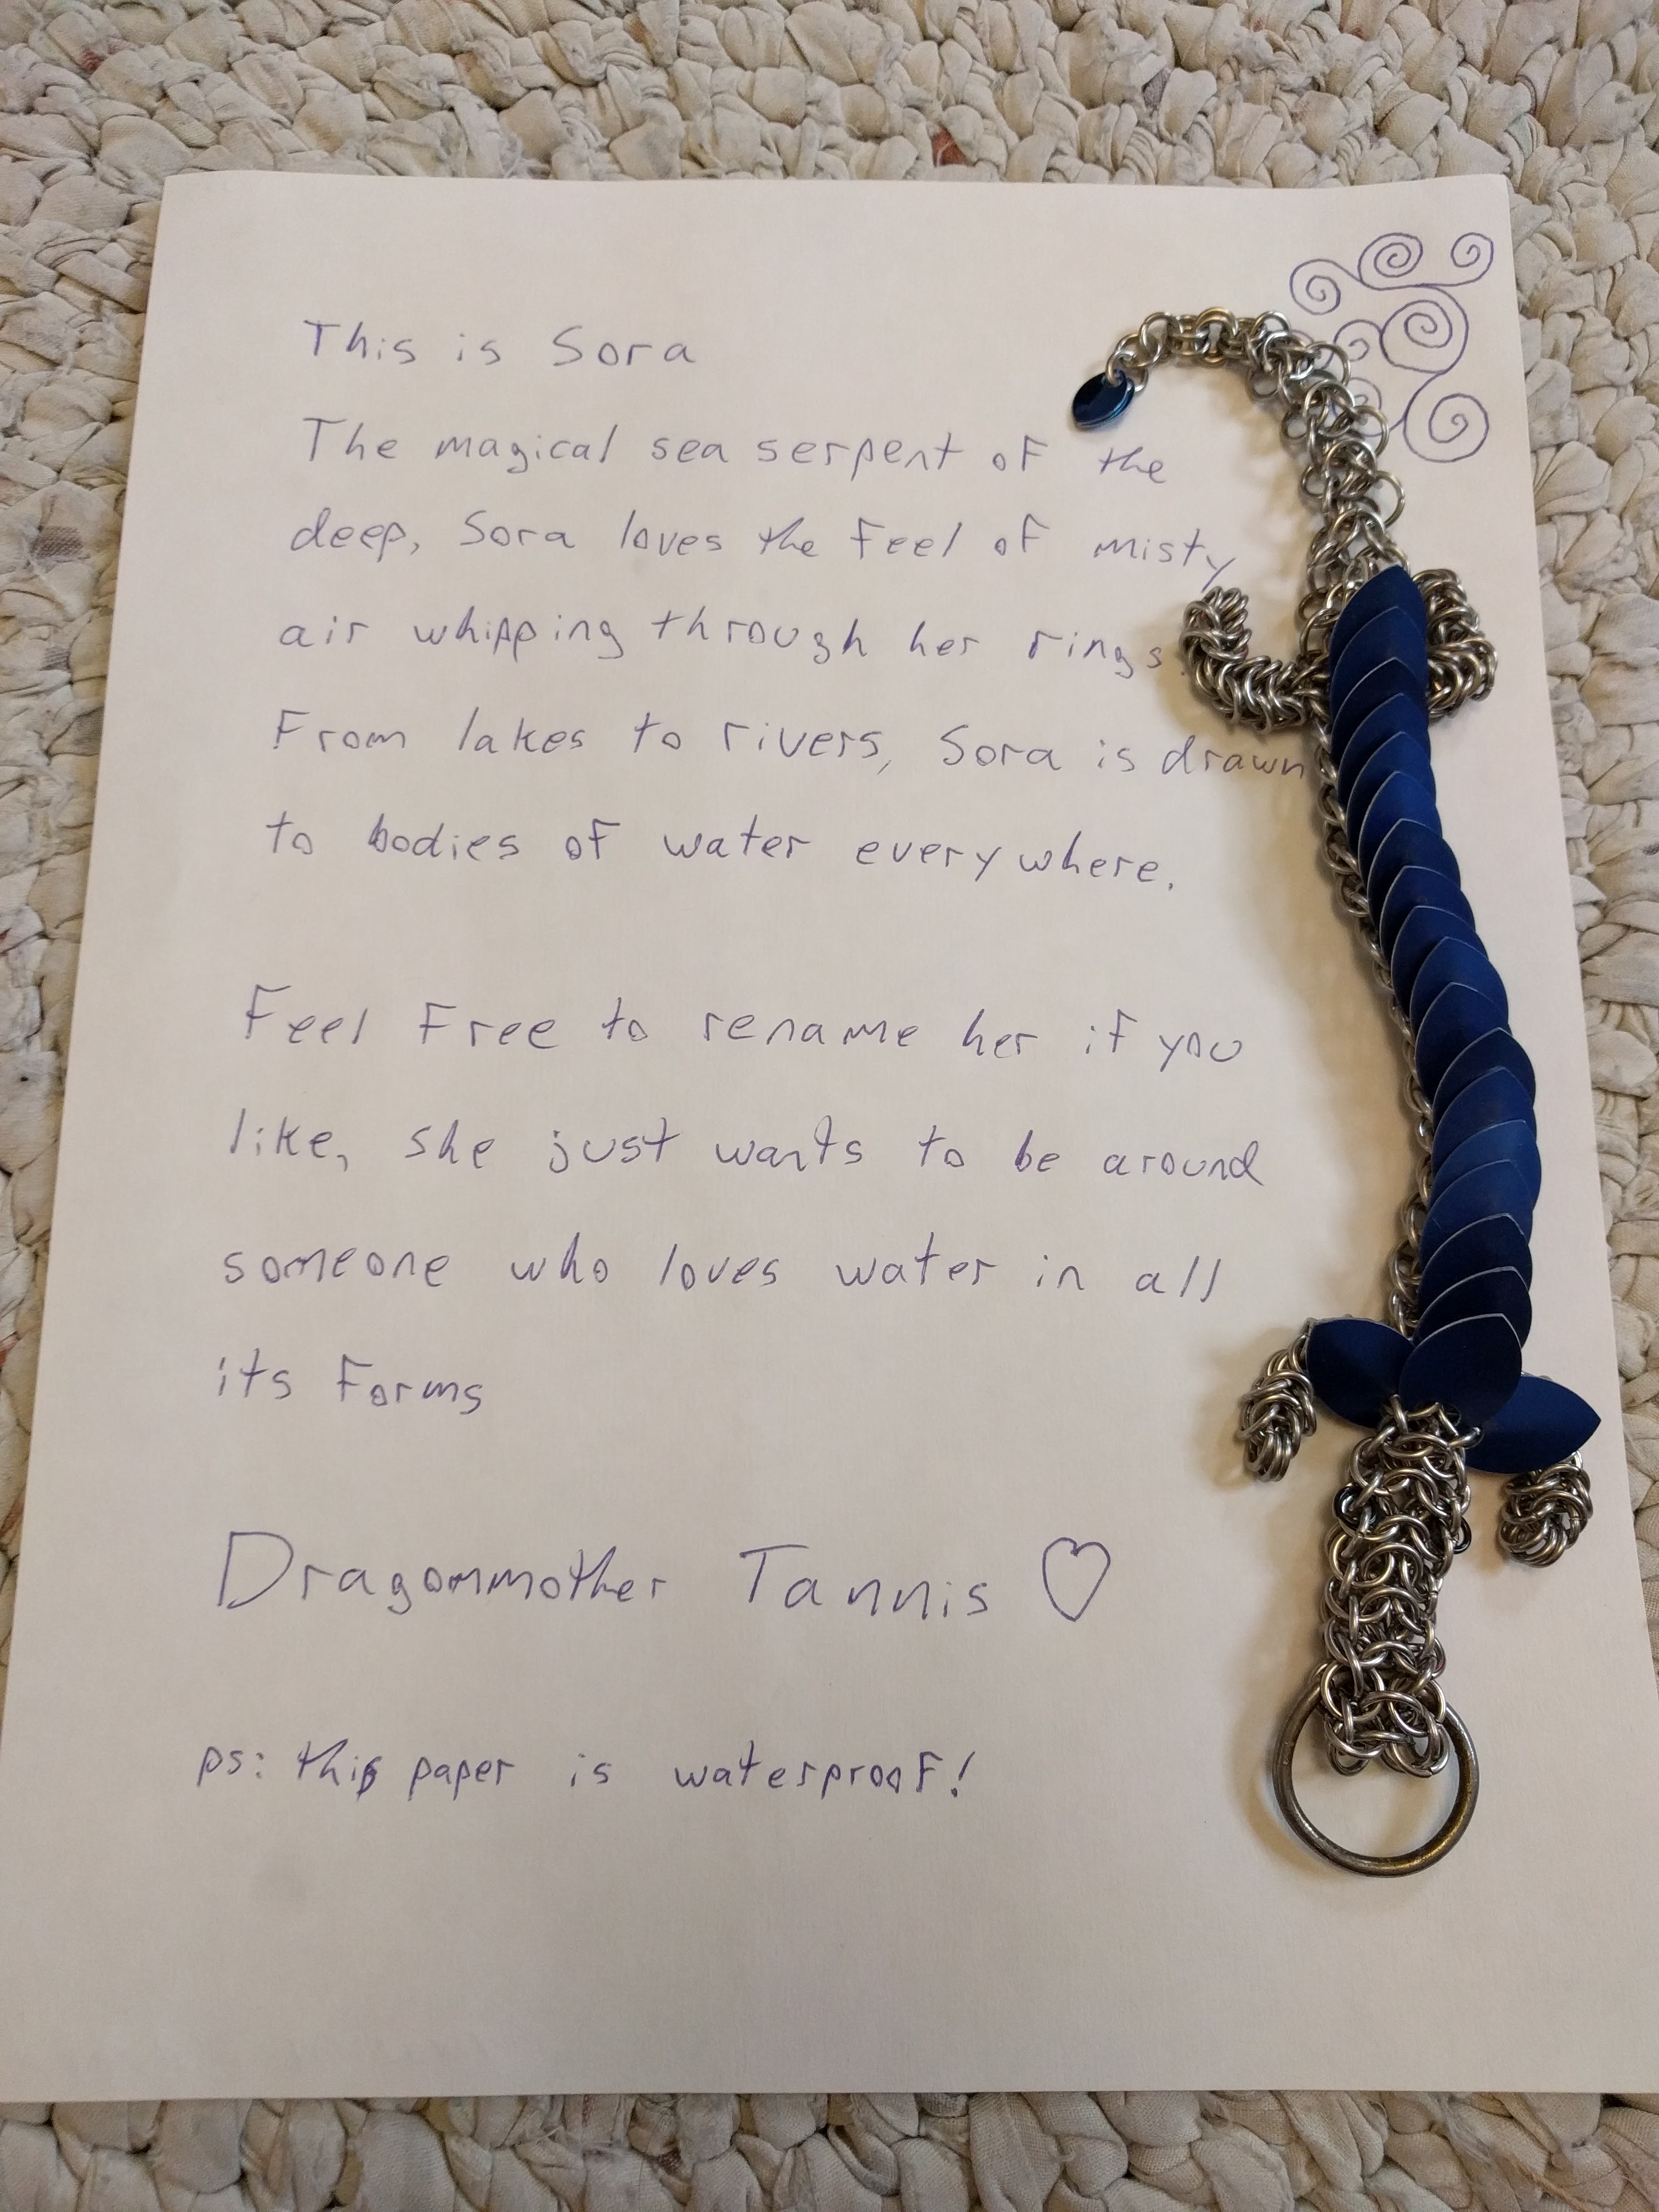 This is Sora
The magical sea serpent of the
deep, Sora loves the feel of misty
air whipping through her rings.
From lakes to rivers, Sora is drawn
to bodies of water everywhere.
Feel Free to rename her if you
like, she just wants to be around
someone who loves water in all
its Forms
Dragonmother Tannis ♡
ps: this paper is waterproof!